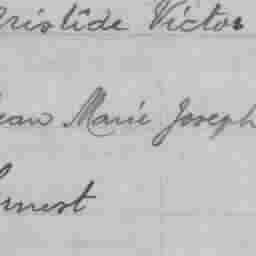 Aristide Victor
Jean Marie Joseph
Ernest